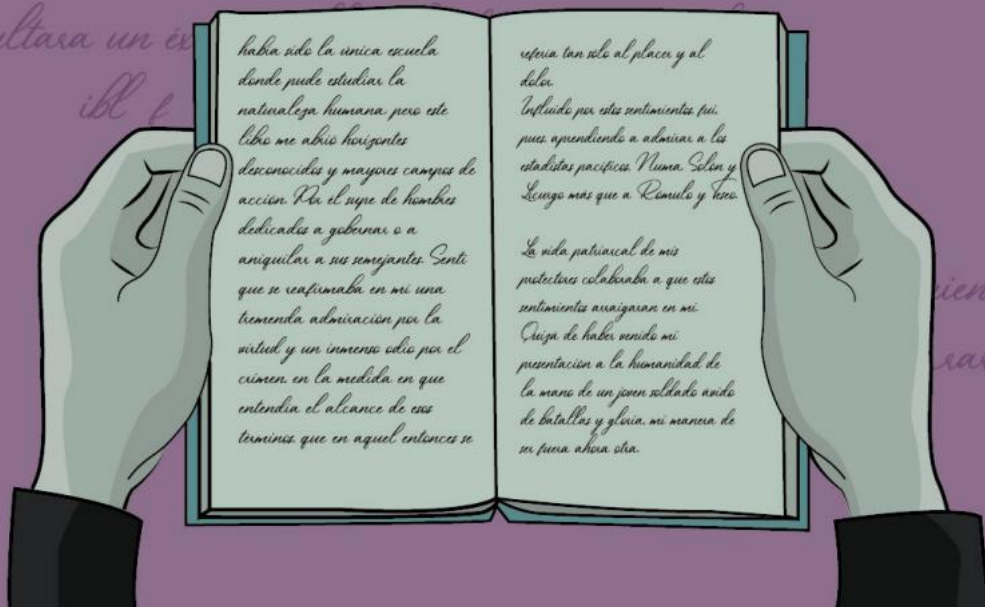 ultara un éx
había sido la única escuela
donde pude estudiar la
naturaleza humana, pero este
libro me abrió horizontes
desconocidos y mayores campos de
acción. Por él supe de hombres
dedicados a gobernar o a
aniquilar a sus semejantes. Sentí
que se reafirmaba en mí una
tremenda admiración por la
virtud y un inmenso odio por el
crimen, en la medida en que
entendía el alcance de esos
términos, que en aquel entonces se
refería tan solo al placer y al
dolor.
Influido por estos sentimientos, fui,
pues, aprendiendo a admirar a los
estadistas pacíficos, Numa, Solón y
Licurgo más que a Rómulo y Teseo.
La vida patriarcal de mis
protectores colaboraba a que estos
sentimientos arraigaran en mí.
Quizá de haber venido mi
presentación a la humanidad de
la mano de un joven soldado ávido
de batallas y gloria, mi manera de
ser fuera ahora otra.